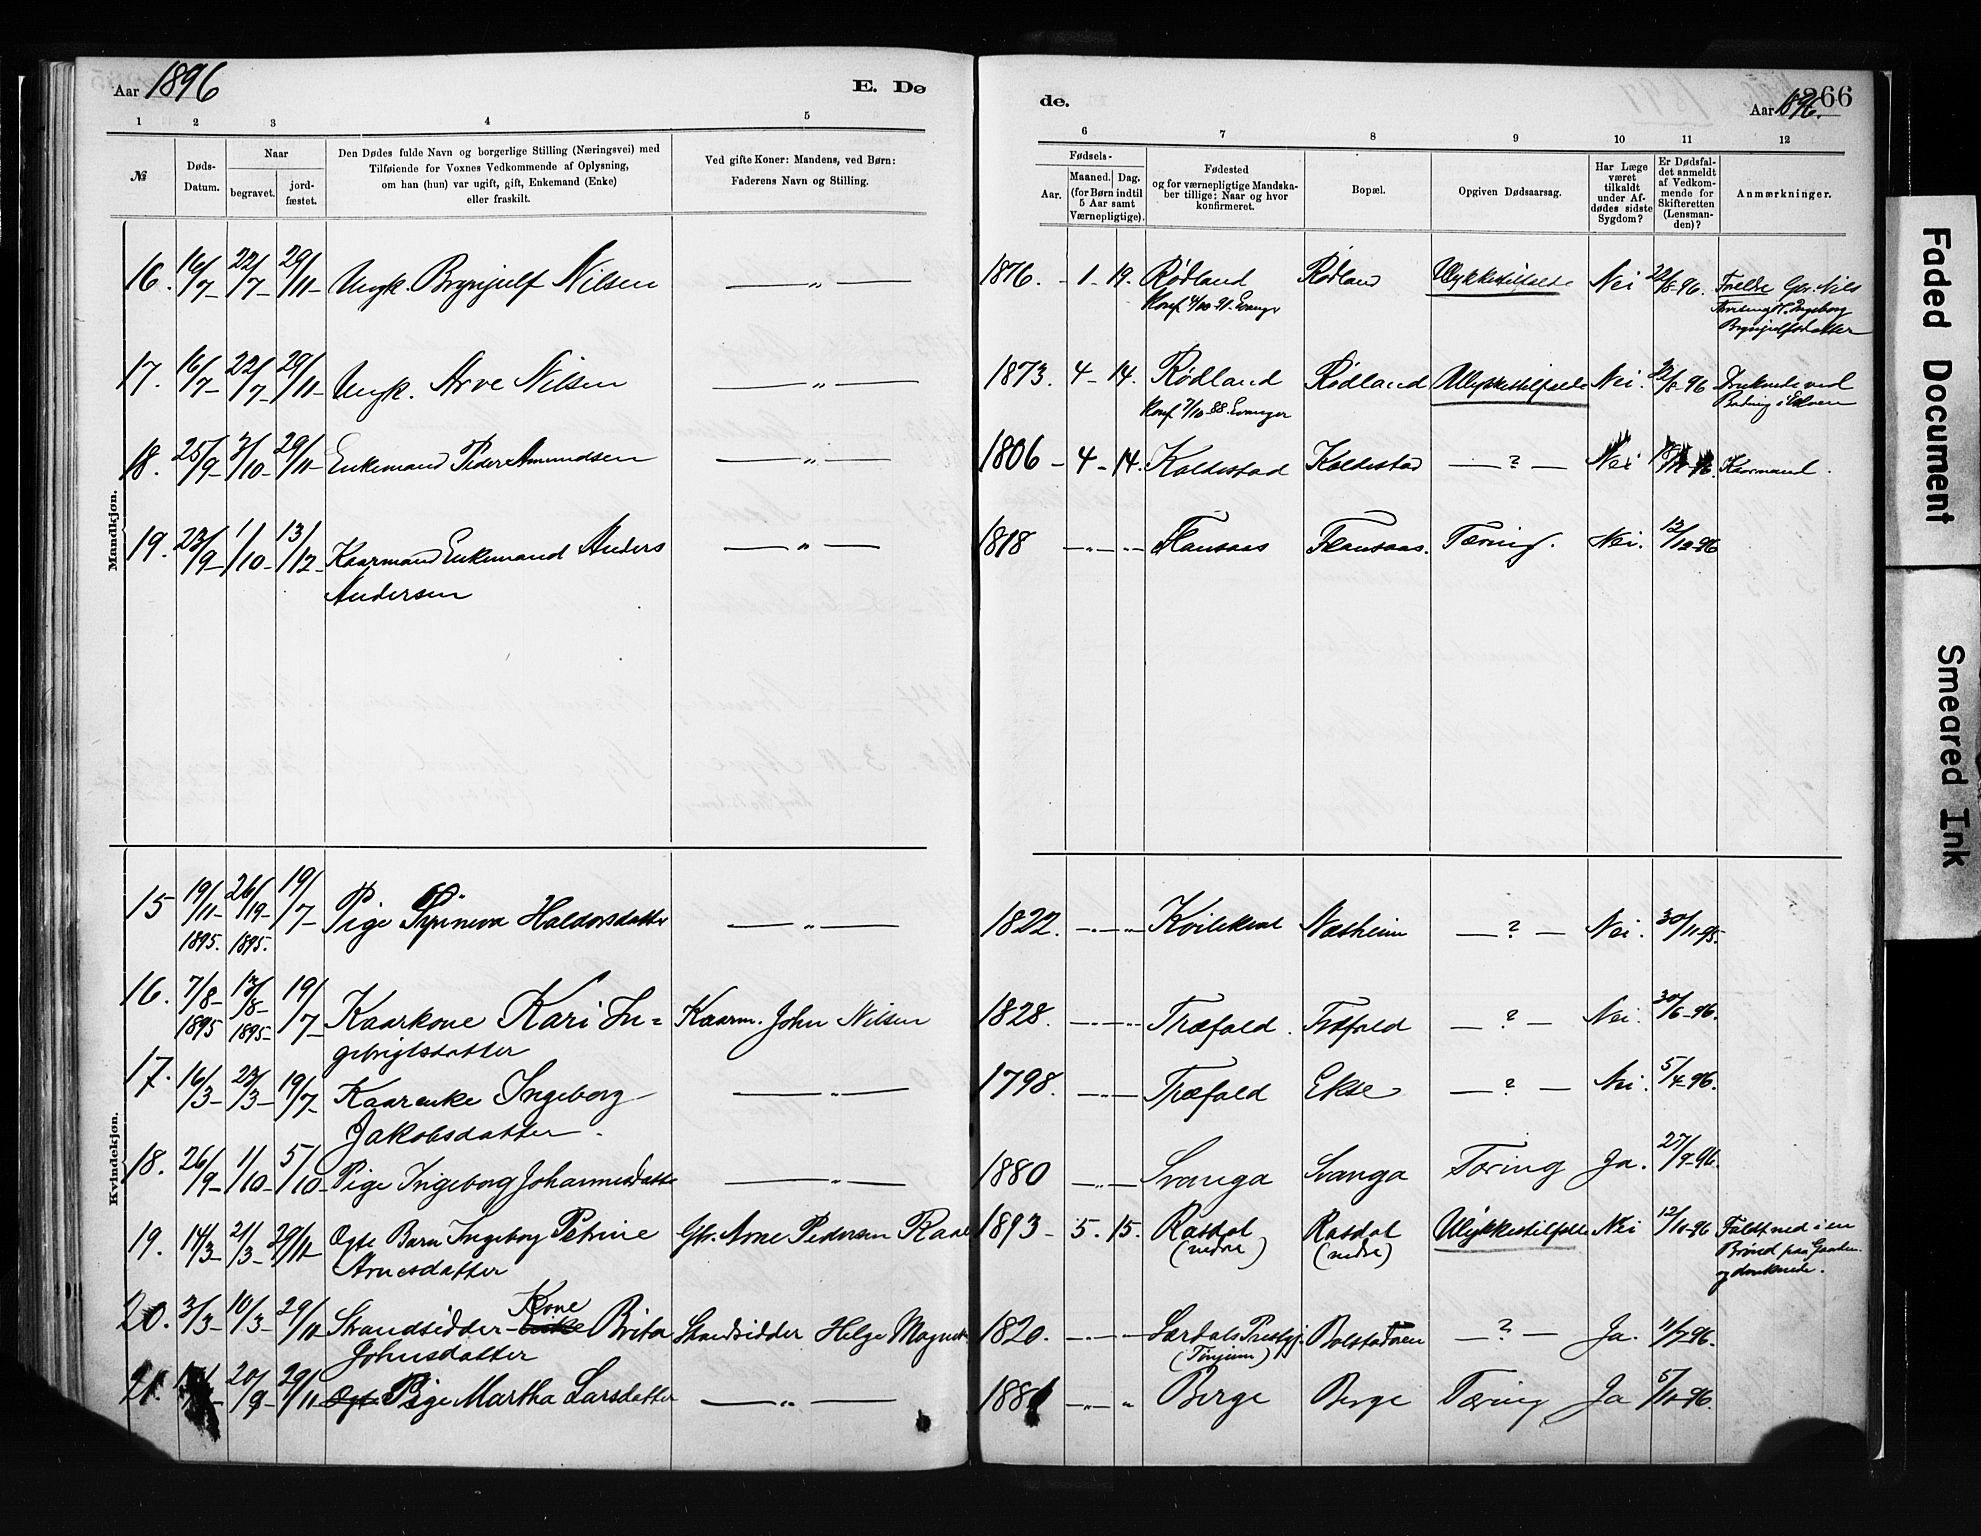 Aar 1896
E. Dø
de.
266
Aar 1896.
1 2 3 4 5
6 7 8 9 10 11 12
№
Døds-
Datum.
Naar
begravet.
jord-
fæstet.
Den Dødes fulde Navn og borgerlige Stilling (Næringsvei) med
Tilføiende for Voxnes Vedkommende af Oplysning,
om han (hun) var ugift, gift, Enkemand (Enke)
eller fraskilt.
Ved gifte Koner: Mandens, ved Børn:
Faderens Navn og Stilling.
Fødsels-
Aar.
Maaned. Dag.
(for Børn indtil
5 Aar samt
Værnepligtige).
Fødested
og for værnepligtige Mandska-
ber tillige: Naar og hvor
konfirmeret.
Bopæl.
Opgiven Dødsaarsag.
Har Læge
været
tilkaldt
under Af-
dødes sidste
Sygdom?
Er Dødsfal-
det anmeldt
af Vedkom-
mende for
Skifteretten
(Lensman-
den)?
Anmærkninger.
Mandkjøn.
16. 16/7- 22/7- 29/11- Ungk. Brynjulf Nilsen — „ — 1876. - 1 - 19. Rødland Rødland Ulykkestilfælde Nei 22/8-96. Forældre Gbr. Nils
Konf 4/10-91. Evanger
Ingeborg
Brynjulfsdatter
17. 16/7- 22/7- 29/11- Ungk. Arve Nilsen — „ — 1873. 4 - 14. Rødland Rødland Ulykkestilfælde Nei. 22/8-96 Druknede ved
Konf 7/10-88 Evanger
Badning i Elven
18. 25/9- 3/10- 29/11- Enkemand Peder Amundsen — „ — 1806 - 4 - 14. Koldestad Koldestad — ? — Nei Kaarmand.
19. 23/9- 1/10- 13/12- Kaarmand Enkemand Anders — „ — 1818 - „ - „ - Flansaas Flansaas. Tæring. Nei. 12/12-96
Andersen
Kvindekjøn.
15 19/11- 26/19- 19/7- Pige Synneva Haldorsdatter — „ — 1822. - „ - „ - Kvilekval Næsheim — ? — Nei. 30/11-95.
1895. 1895.
16. 7/8- 13/8- 19/7- Kaarkone Kari In= Kaarm. John Nilsen 1828. - „ - „ - Træfald. Træfald — ? — Nei. 30/6-96.
1895 1895-
gebrigtsdatter
17. 16/3- 23/3- 19/7- Kaarenke Ingeborg — „ — 1798. - „ - Træfald Ekse — ? — Nei. 5/4-96.
Jakobsdatter.
18. 26/9- 1/10- 5/10- Pige Ingeborg Johannesdatter — „ — 1880 - „ - Svanga Svanga Tæring Ja. 27/9-96.
19. 14/3- 21/3- 29/11 Ægte Barn Ingeborg Petrine Gbr. Arne Pedersen 1893 - 5. 15. Rasdal Rasdal Ulykkestilfælde Nei 12/10-96 Faldt ned i en
(nedre) (nedre) Brønd paa Gaarden
Arnesdatter og druknede.
20. 3/3- 10/3- 29/11 Strandsidder Kone Enke Brita Strandsidder Helge 1820. - „ - „ - Lærdals Prestgj. Bolstadøren — ? — Ja. 11/7-96.
(Tønjum)
Johnsdatter
21. 20/9- 29/11- Ægte Pige Martha Larsdatter — „ — Berge Berge Tæring Ja 5/10-96.
Faded Document
Smeared Ink